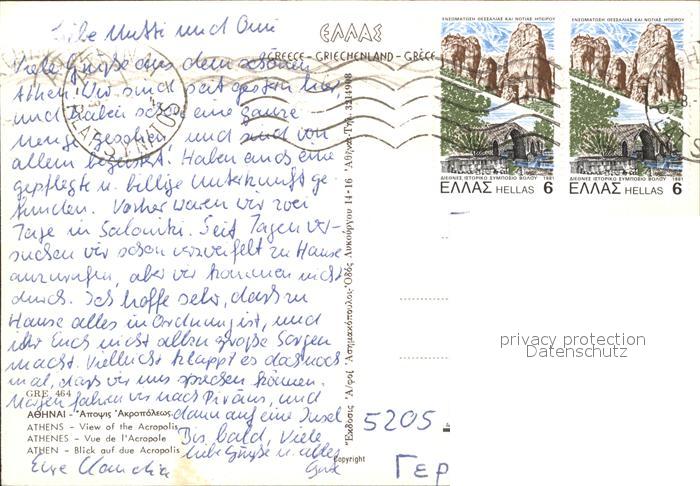 Liebe Mutti und Omi
Viele Grüße aus dem schönen
Athen. Wir sind seit gestern hier
und haben schon eine ganze
Menge gesehen, und sind von
allem begeistert. Haben auch eine
gepflegte u. billige Unterkunft ge-
funden. Vorher waren wir zwei
Tage in Saloniki. Seit Tagen ver-
suchen wir schon verzweifelt zu Hause
anzurufen, aber wir kommen nicht
durch. Ich hoffe sehr, dass zu
Hause alles in Ordnung ist, und
ihr Euch nicht allzu große Sorgen
macht. Vielleicht klappt es doch noch
mal, dass wir uns sprechen können.
Morgen fahren wir nach Piräus, und
dann auf eine Insel
Bis bald, Viele
liebe Grüße u. alles
Gute
Eure Claudia
GRE 464
ΑΘΗΝΑΙ - Ἄποψις Ἀκροπόλεως
ATHENS - View of the Acropolis
ATHENES - Vue de l'Acropole
ATHEN - Blick auf due Acropolis
ΕΛΛΑΣ
GREECE - GRIECHENLAND - GRÈCE
Ἔκδοσις Ἀφοὶ Ἀσημακόπουλος Ὁδὸς Λυκούργου 14-16 Ἀθῆναι-Τηλ. 3214908
Copyright
ΕΝΣΩΜΑΤΩΣΗ ΘΕΣΣΑΛΙΑΣ ΚΑΙ ΝΟΤΙΑΣ ΗΠΕΙΡΟΥ
ΔΙΕΘΝΕΣ ΙΣΤΟΡΙΚΟ ΣΥΜΠΟΣΙΟ ΒΟΛΟΥ 1981
ΕΛΛΑΣ HELLAS 6
ΕΝΣΩΜΑΤΩΣΗ ΘΕΣΣΑΛΙΑΣ ΚΑΙ ΝΟΤΙΑΣ ΗΠΕΙΡΟΥ
ΔΙΕΘΝΕΣ ΙΣΤΟΡΙΚΟ ΣΥΜΠΟΣΙΟ ΒΟΛΟΥ 1981
ΕΛΛΑΣ HELLAS 6
privacy protection
Datenschutz
5205
ΓΕΡ